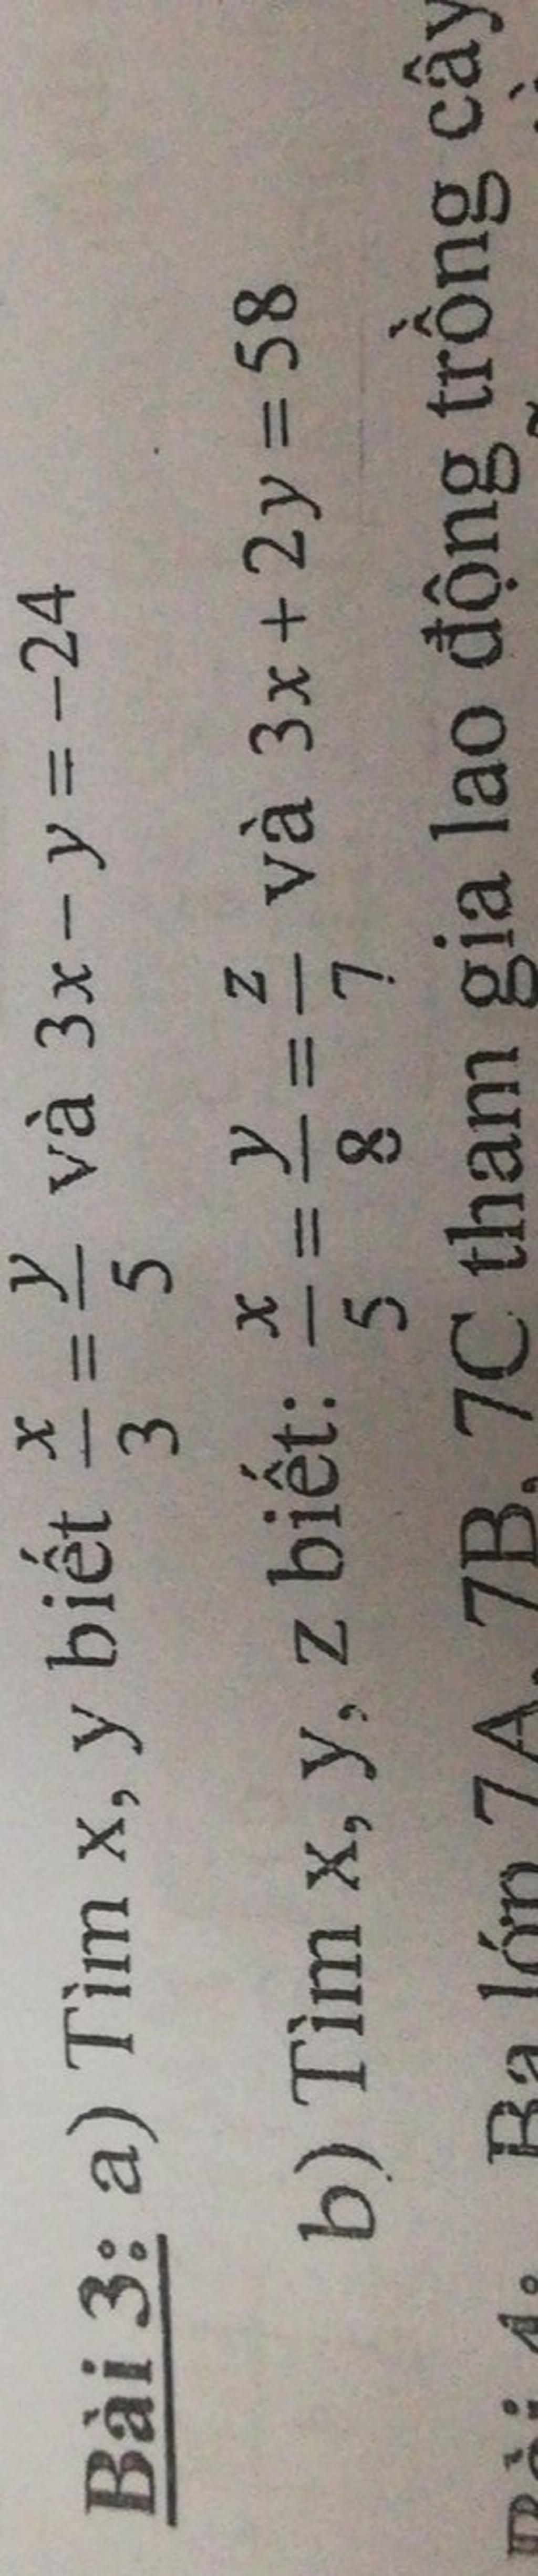 Bài 3: a) Tìm x, y biết x/3 = y/5 và 3x − y = −24
b) Tìm x, y, z biết: x/5 = y/8 = z/7 và 3x + 2y = 58
Ba lớp 7A, 7B, 7C tham gia lao động trồng cây